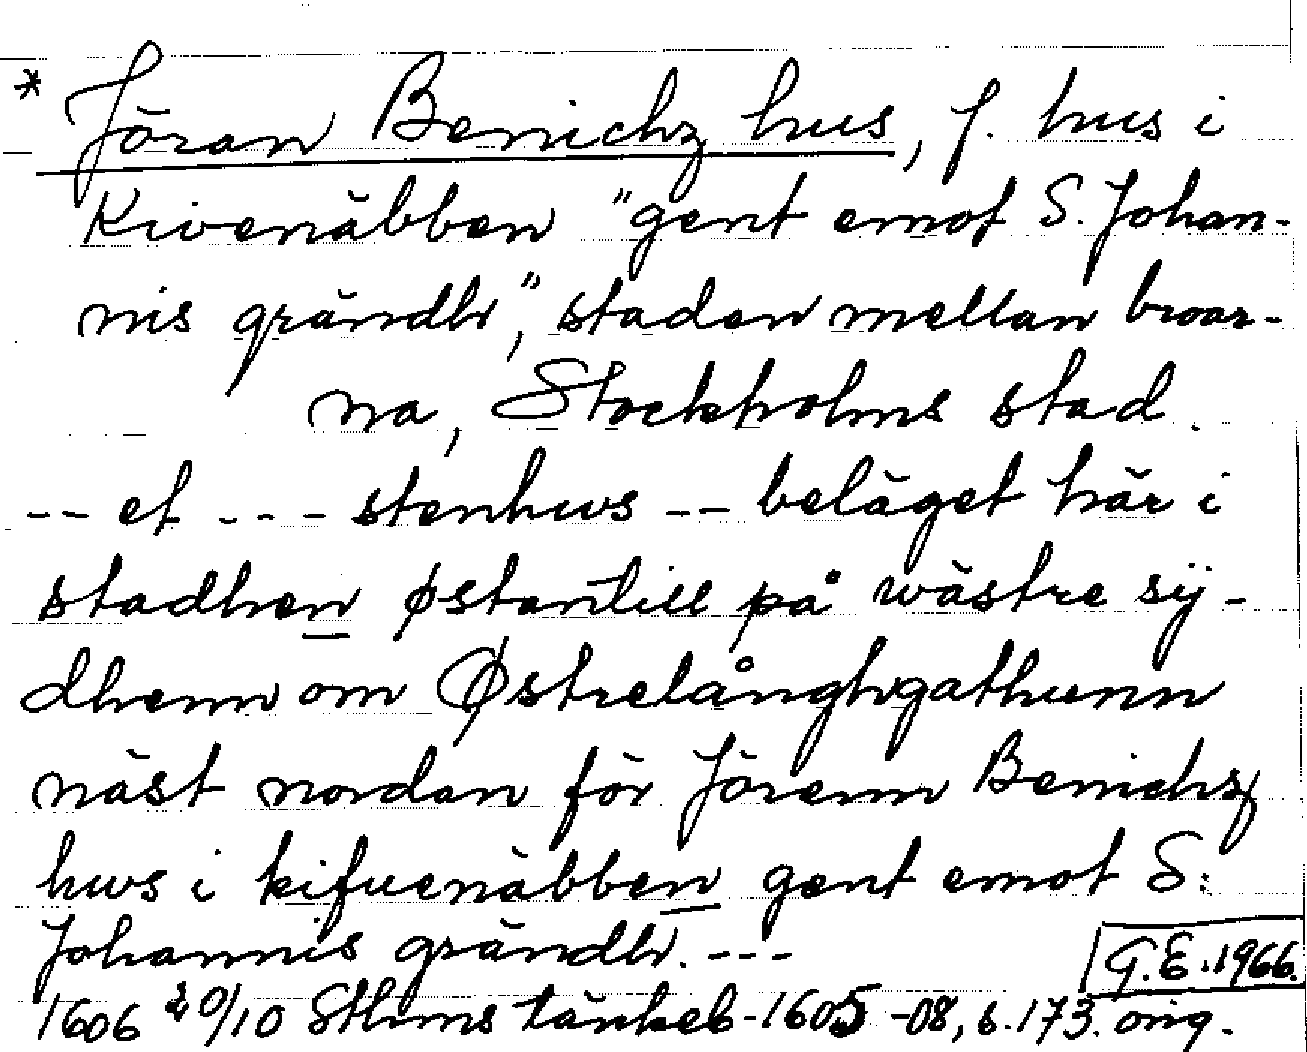 * Jöran Benichz hus, f. hus i
Kivenäbben "gent emot S. Johan-
nis grändh", staden mellan broar-
na, Stockholms stad.
-- et --- stenhws -- beläget här i
stadhen østantill på wästre sÿ-
dhenn om Østrelånghgathunn
näst nordan för Jörenn Benichz
hws i kifuenäbben gent emot S:
Johannis grändh. ---
G.E. 1966.
1606 20/10 Sthms tänkeb. 1605-08, s. 173. orig.